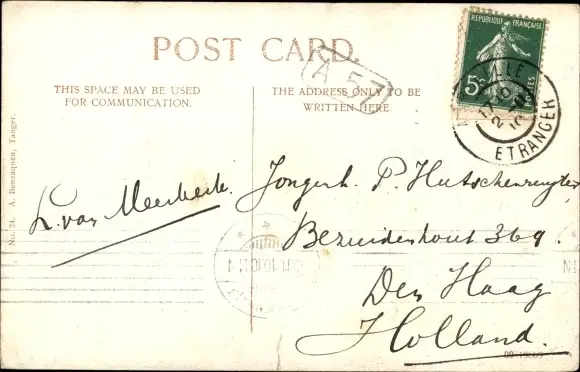 POST CARD.
A 57
THIS SPACE MAY BE USED
FOR COMMUNICATION.
THE ADDRESS ONLY TO BE
WRITTEN HERE
REPUBLIQUE FRANÇAISE
5c
POSTES
ETRANGER
No. 24. A. Benzaquen, Tanger.
L. van Meerbeek.
Jongerh. P. Hutschenruyter
Bezuidenhout 369.
Den Haag
Holland.